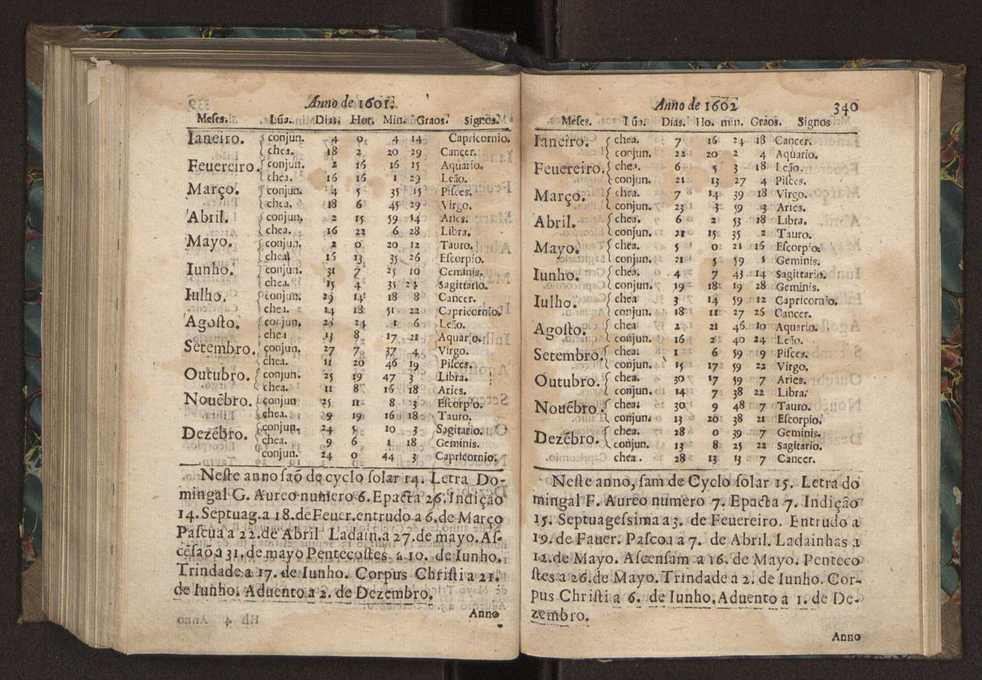 Anno de 1601.
Meses. Lũa. Dias. Hor. Min. Graos. Signos.
Ianeiro. conjun. 4 0 4 14 Capricornio.
chea. 18 2 20 29 Cancer.
Feuereiro. conjun. 2 16 16 15 Aquario.
chea. 16 16 1 29 Leão.
Março. conjun. 4 5 35 15 Pisces.
chea. 18 6 45 29 Virgo.
Abril. conjun. 2 15 59 14 Aries.
chea. 16 22 6 28 Libra.
Mayo. conjun. 2 0 20 12 Tauro.
chea 16 13 35 26 Escorpio.
Iunho. conjun. 31 7 25 10 Geminis.
chea. 15 4 31 24 Sagittario.
Iulho. conjun. 29 14 18 8 Cancer.
chea. 14 18 51 22 Capricornio.
Agosto. conjun. 24 1 6 Leão.
chea 13 8 17 21 Aquario.
Setembro. conjun. 27 7 37 4 Virgo.
chea. 11 20 46 19 Pisces.
Outubro. conjun. 25 19 47 3 Libra.
chea. 11 8 16 18 Aries.
Nouẽbro. conjun 25 11 8 3 Escorpio.
chea. 9 19 16 18 Tauro.
Dezẽbro. conjun. 24 5 10 3 Sagitario.
chea. 9 6 1 18 Geminis.
conjun. 24 0 44 3 Capricornio.
Neste anno saõ de cyclo solar 14. Letra Do-
mingal G. Aureo numero 6. Epacta 26. Indição
14. Septuag. a 18. de Feuer. entrudo a 6. de Março
Pascua a 22. de Abril Ladain. a 27. de mayo. As-
cẽsaõ a 31. de mayo Pentecostes a 10. de Iunho.
Trindade a 17. de Iunho. Corpus Christi a 21.
de Iunho. Aduento a 2. de Dezembro.
Anno
Anno de 1602 340
Meses. Lũa. Dias. Ho. min. Graos. Signos
Ianeiro. chea. 7 16 24 18 Cancer.
conjun. 22 20 2 4 Aquario.
Feuereiro. chea. 6 5 3 18 Leão.
conjun. 21 13 27 4 Pisces.
Março. chea. 7 14 39 18 Virgo.
conjun. 23 3 59 3 Aries.
Abril. chea. 6 2 53 18 Libra.
conjun. 21 15 35 2 Tauro.
Mayo. chea. 5 0 21 16 Escorpio.
conjun. 21 5 59 1 Geminis.
Iunho. chea. 4 7 45 14 Sagittario.
conjun. 19 18 19 28 Geminis.
Iulho. chea 3 14 59 12 Capricornio.
conjun. 18 11 27 26 Cancer.
Agosto. chea 2 21 46 10 Aquario.
conjun. 16 2 40 24 Leão.
Setembro. chea. 1 6 59 9 Pisces.
conjun. 15 17 59 22 Virgo.
Outubro. chea. 30 17 59 7 Aries.
conjun. 14 7 38 22 Libra.
Nouẽbro. chea. 30 9 48 7 Tauro.
conjun. 13 20 38 21 Escorpio.
Dezẽbro. chea. 28 0 39 7 Geminis.
conjun. 13 8 25 22 Sagitario.
chea. 28 13 13 7 Cancer.
Neste anno, sam de Cyclo solar 15. Letra do
mingal F. Aureo numero 7. Epacta 7. Indição
15. Septuagessima a 3. de Feuereiro. Entrudo a
19. de Fauer. Pascoa a 7. de Abril. Ladainhas a
12. de Mayo. Ascensam a 16. de Mayo. Penteco
stes a 26. de Mayo. Trindade a 2. de Iunho. Cor-
pus Christi a 6. de Iunho. Aduento a 1. de De-
zembro.
Anno